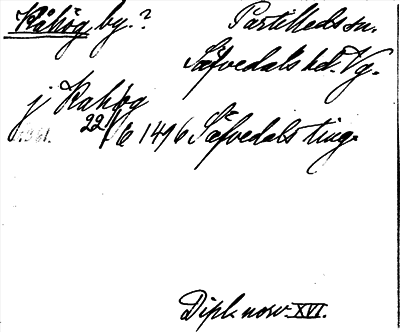 Råhög, by.? Partilleds sn.
Säfvedals hd. Vg.
j Rahög
22/6 1416 Säfvedals ting.
Dipl. norv. XVI.